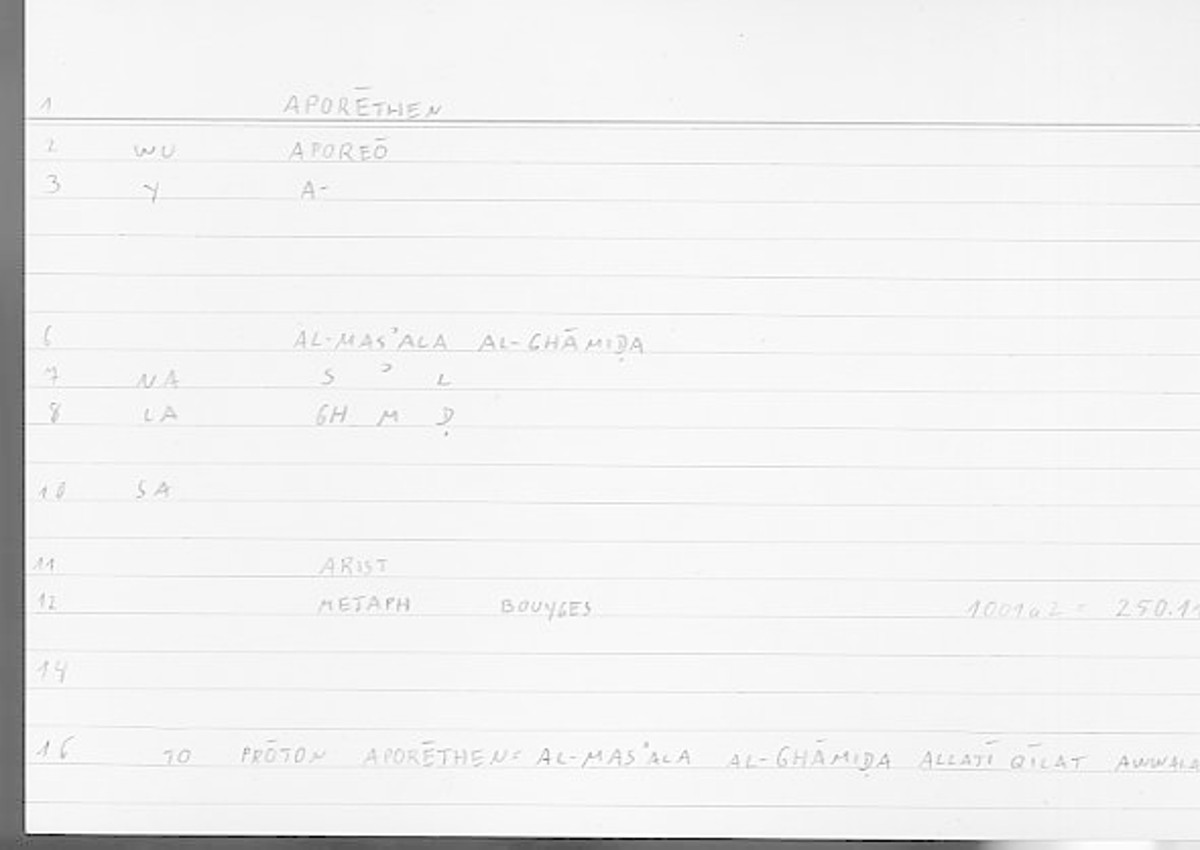 1 APORĒTHEN
2 WU APOREŌ
3 Y A-
6 AL-MASʾALA AL-GHĀMIḌA
7 NA S ʾ L
8 LA GH M Ḍ
10 SA
11 ARIST
12 METAPH BOUYGES 1001a2 = 250.11
14
16 TO PRŌTON APORĒTHEN= AL-MASʾALA AL-GHĀMIḌA ALLATĪ QĪLAT AWWALA